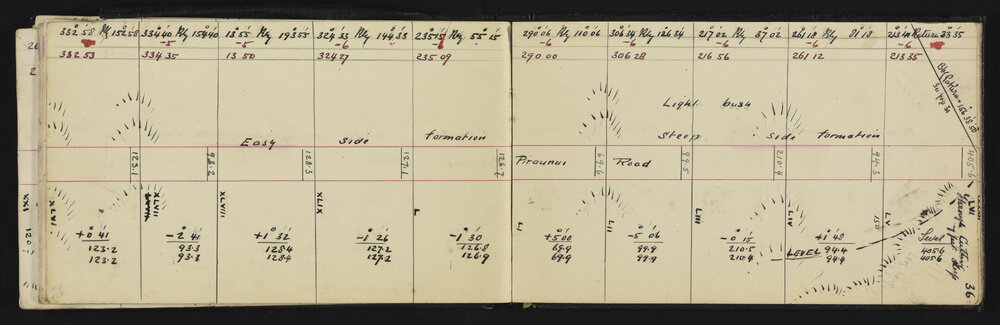 332°58 Rly 152 58 334 40 Rly 154 40 13 55 Rly 193 55 324 33 Rly 144 33 235 15 Rly 55 15 290 06 Rly 110 06 306 34 Rly 126 34 217 02 Rly 37 02 261 18 Rly 81 18 213 40 Return 33 35
-5 -5 -6 -6 -6 -6 -6 -6 -6
332 53 334 35 13 50 324 27 235 09 290 00 306 28 216 56 261 12 213 35
26
Light bush
Easy Side formation Steep Side formation
Piraunui Road
123.1 98.2 128.5 127.1 126.7 69.6 99.5 210.4 94.5 405.6
XXI XLVI XLVIII XLVII XLIX L LI LII LIII LIV LV LVI
120.1
Through Cutting
7 feet deep
150
+0°41 -2°41 +1°32 -1°26 -1°30 +5°00 -5°06 -0°15 +1°48 Level
123.2 93.3 128.4 127.2 126.8 69.9 99.9 210.5 94.4 405.6
123.2 93.3 128.4 127.2 126.9 69.9 99.9 210.4 94.4 405.6
LEVEL
36